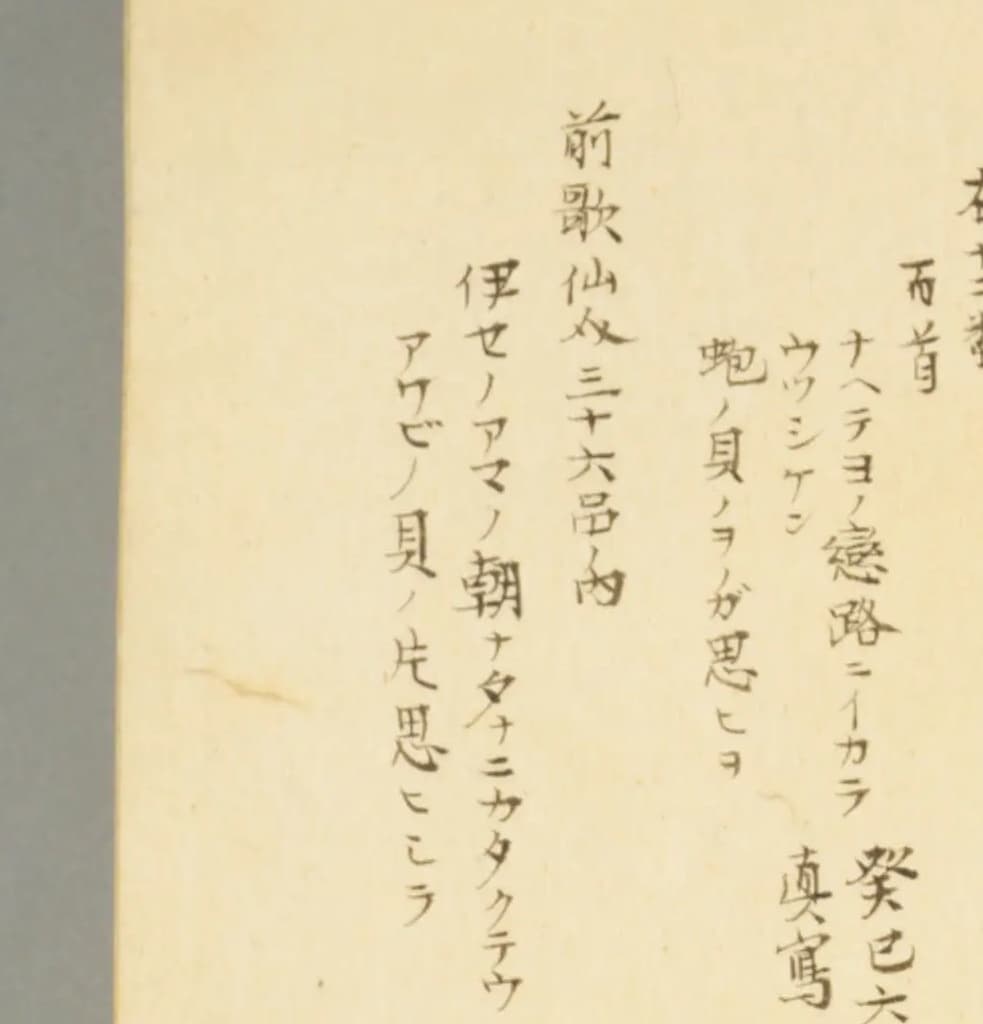 百首
ナヘテヨノ戀路ニイカラ
ウツシケン
蚫ノ貝ノヲノガ思ヒヲ
癸巳六
真寫
前歌仙介三十六品ノ内
伊セノアマノ朝ナタナニカタクテウ
アワビノ貝ノ片思ヒシラ